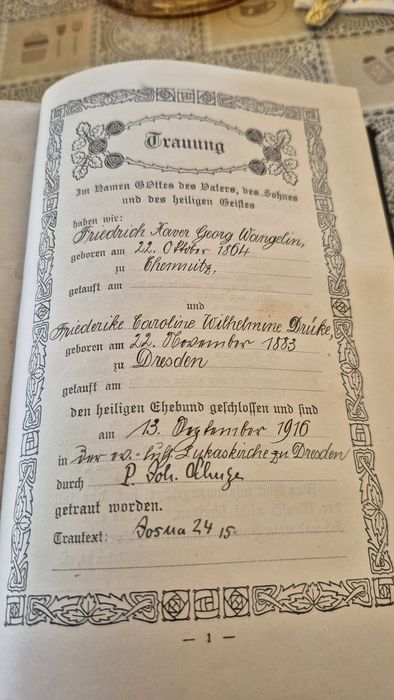 Trauung
Im Namen GOttes des Vaters, des Sohnes
und des heiligen Geistes
haben wir:
Friedrich Xaver Georg Wangelin,
geboren am 22. Oktober 1864
zu Chemnitz,
getauft am
und
Friederike Caroline Wilhelmine Drüke,
geboren am 22. November 1883
zu Dresden
getauft am
den heiligen Ehebund geschlossen und sind
am 13. September 1916
in der ev.-luth. Lukaskirche zu Dresden
durch P. Joh. Kluge
getraut worden.
Trautext: Josua 24 15.
— 1 —